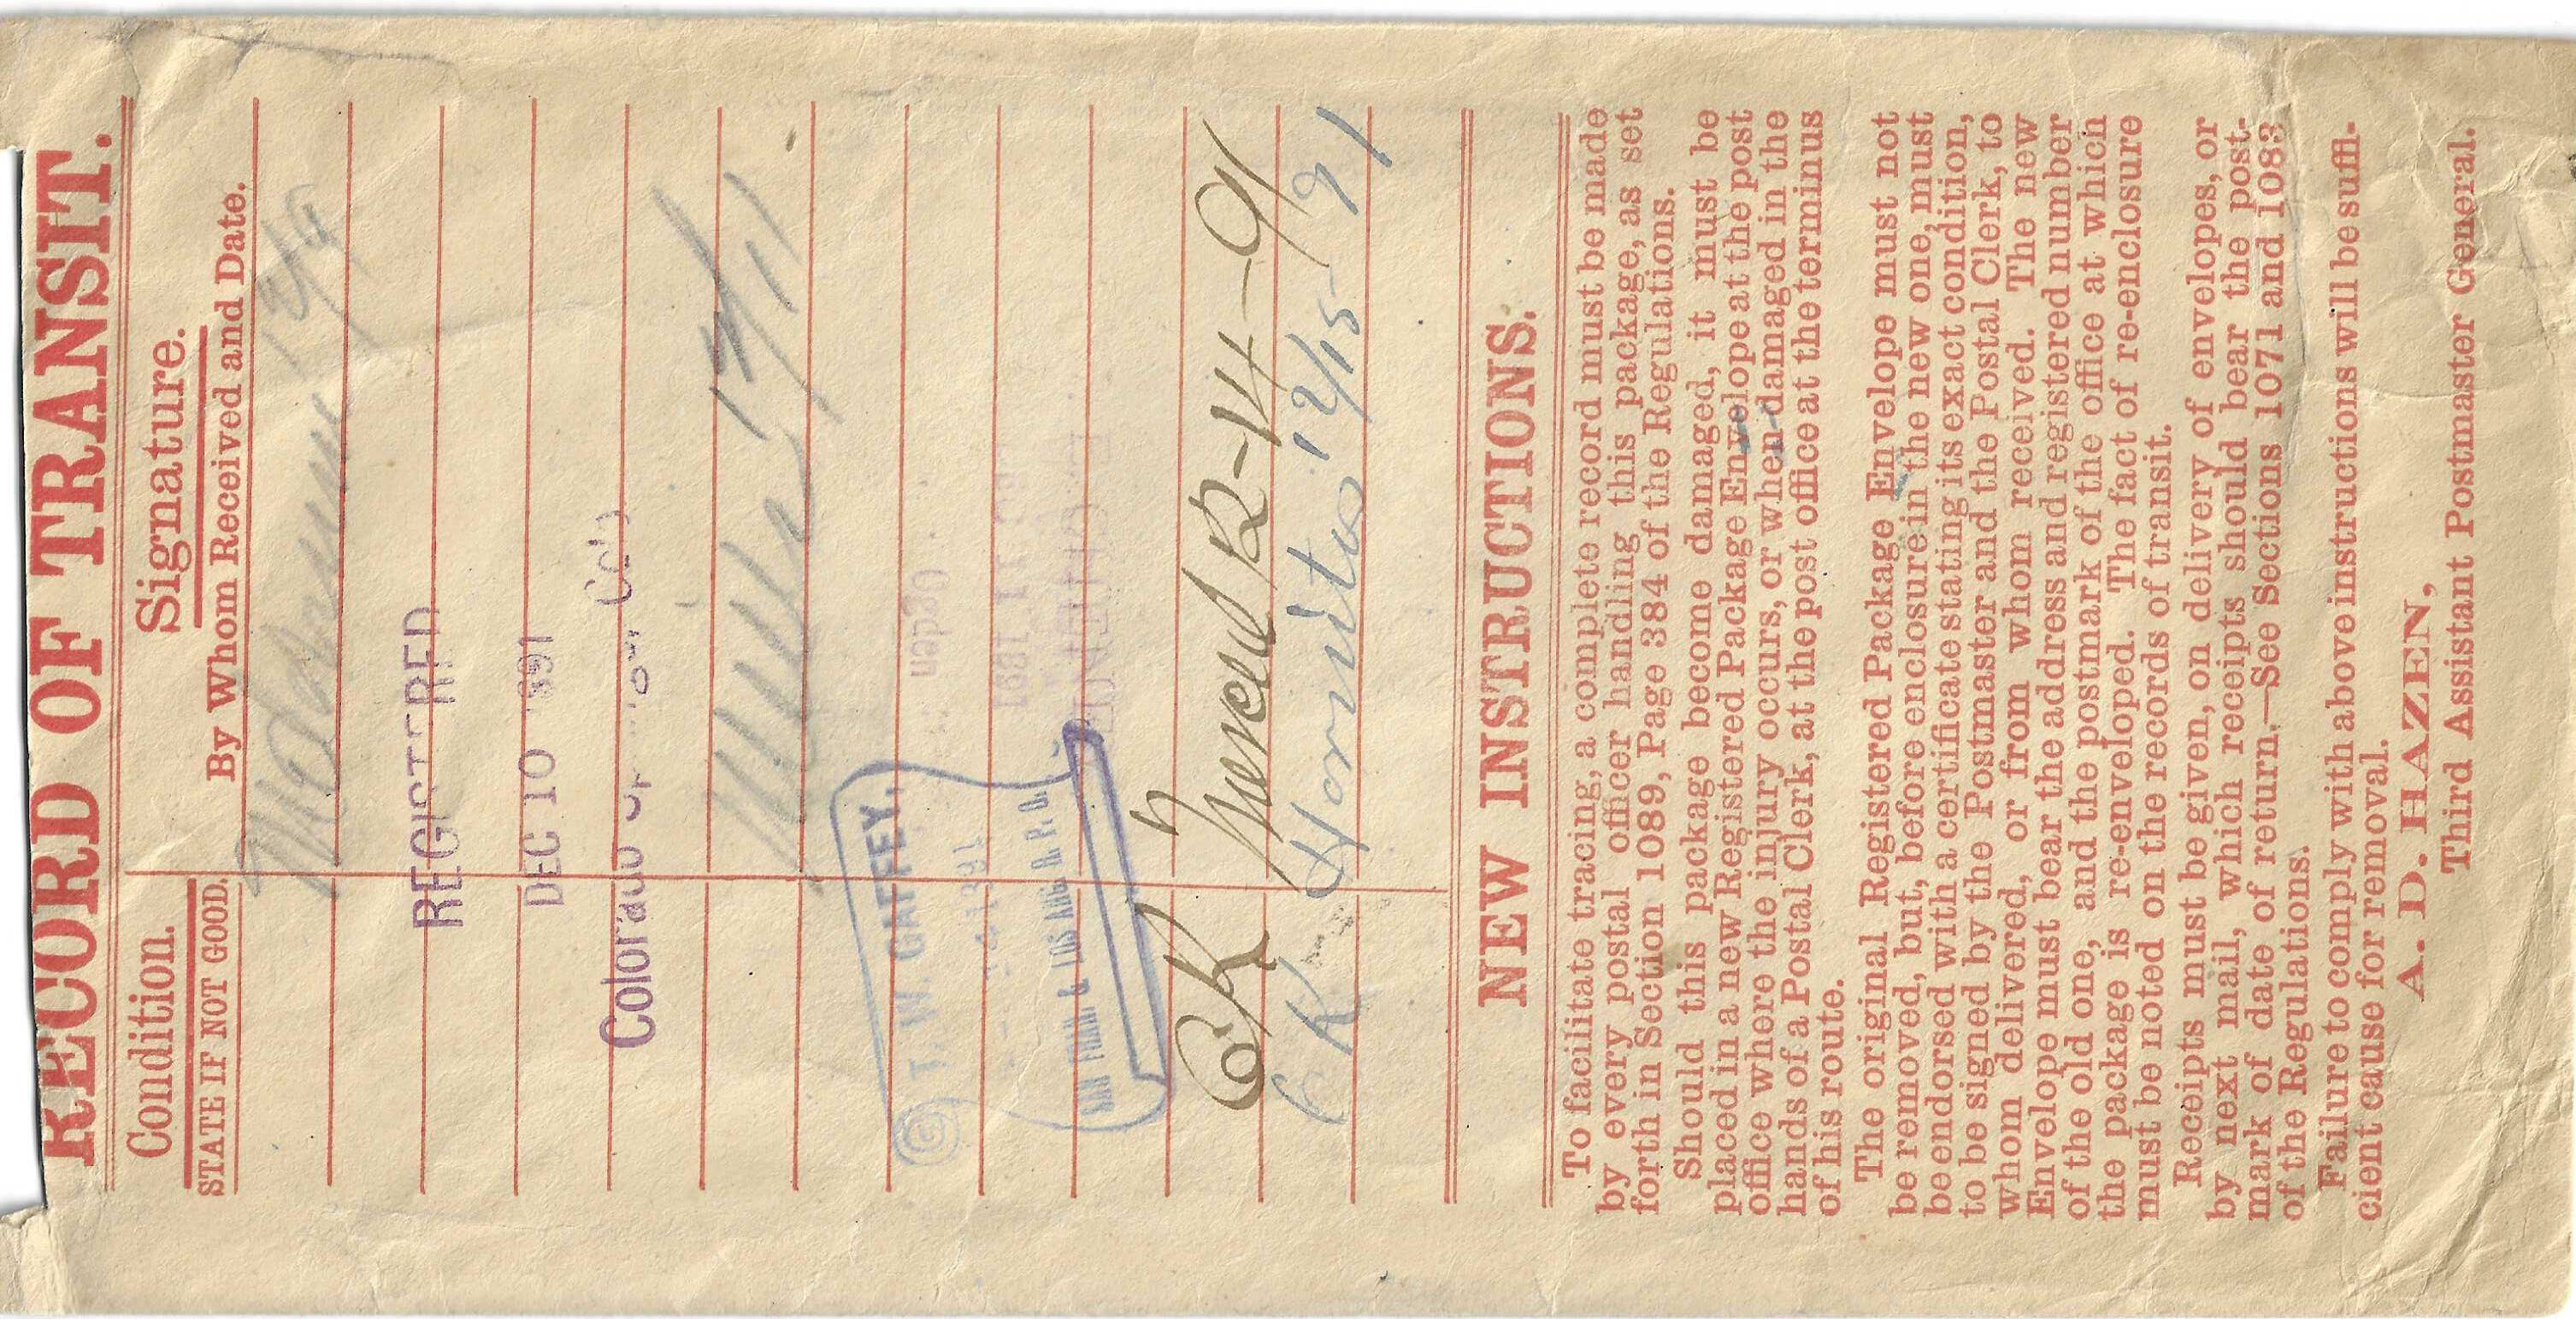 RECORD OF TRANSIT.
Condition.
STATE IF NOT GOOD.
Signature.
By Whom Received and Date.
12/9
REGISTERED
DEC 10 1891
Colorado
12/11
T. W. GAFFEY.
Ogden
SAN FRAN. & LOS ANG. R. P. O.
OK Merced 12-14-91
OK Hornitos 12/15-91
NEW INSTRUCTIONS.
To facilitate tracing, a complete record must be made
by every postal officer handling this package, as set
forth in Section 1089, Page 384 of the Regulations.
Should this package become damaged, it must be
placed in a new Registered Package Envelope at the post
office where the injury occurs, or when damaged in the
hands of a Postal Clerk, at the post office at the terminus
of his route.
The original Registered Package Envelope must not
be removed, but, before enclosure in the new one, must
be endorsed with a certificate stating its exact condition,
to be signed by the Postmaster and the Postal Clerk, to
whom delivered, or from whom received. The new
Envelope must bear the address and registered number
of the old one, and the postmark of the office at which
the package is re-enveloped. The fact of re-enclosure
must be noted on the records of transit.
Receipts must be given, on delivery of envelopes, or
by next mail, which receipts should bear the post-
mark of date of return.—See Sections 1071 and 1083
of the Regulations.
Failure to comply with above instructions will be suffi-
cient cause for removal.
A. D. HAZEN,
Third Assistant Postmaster General.